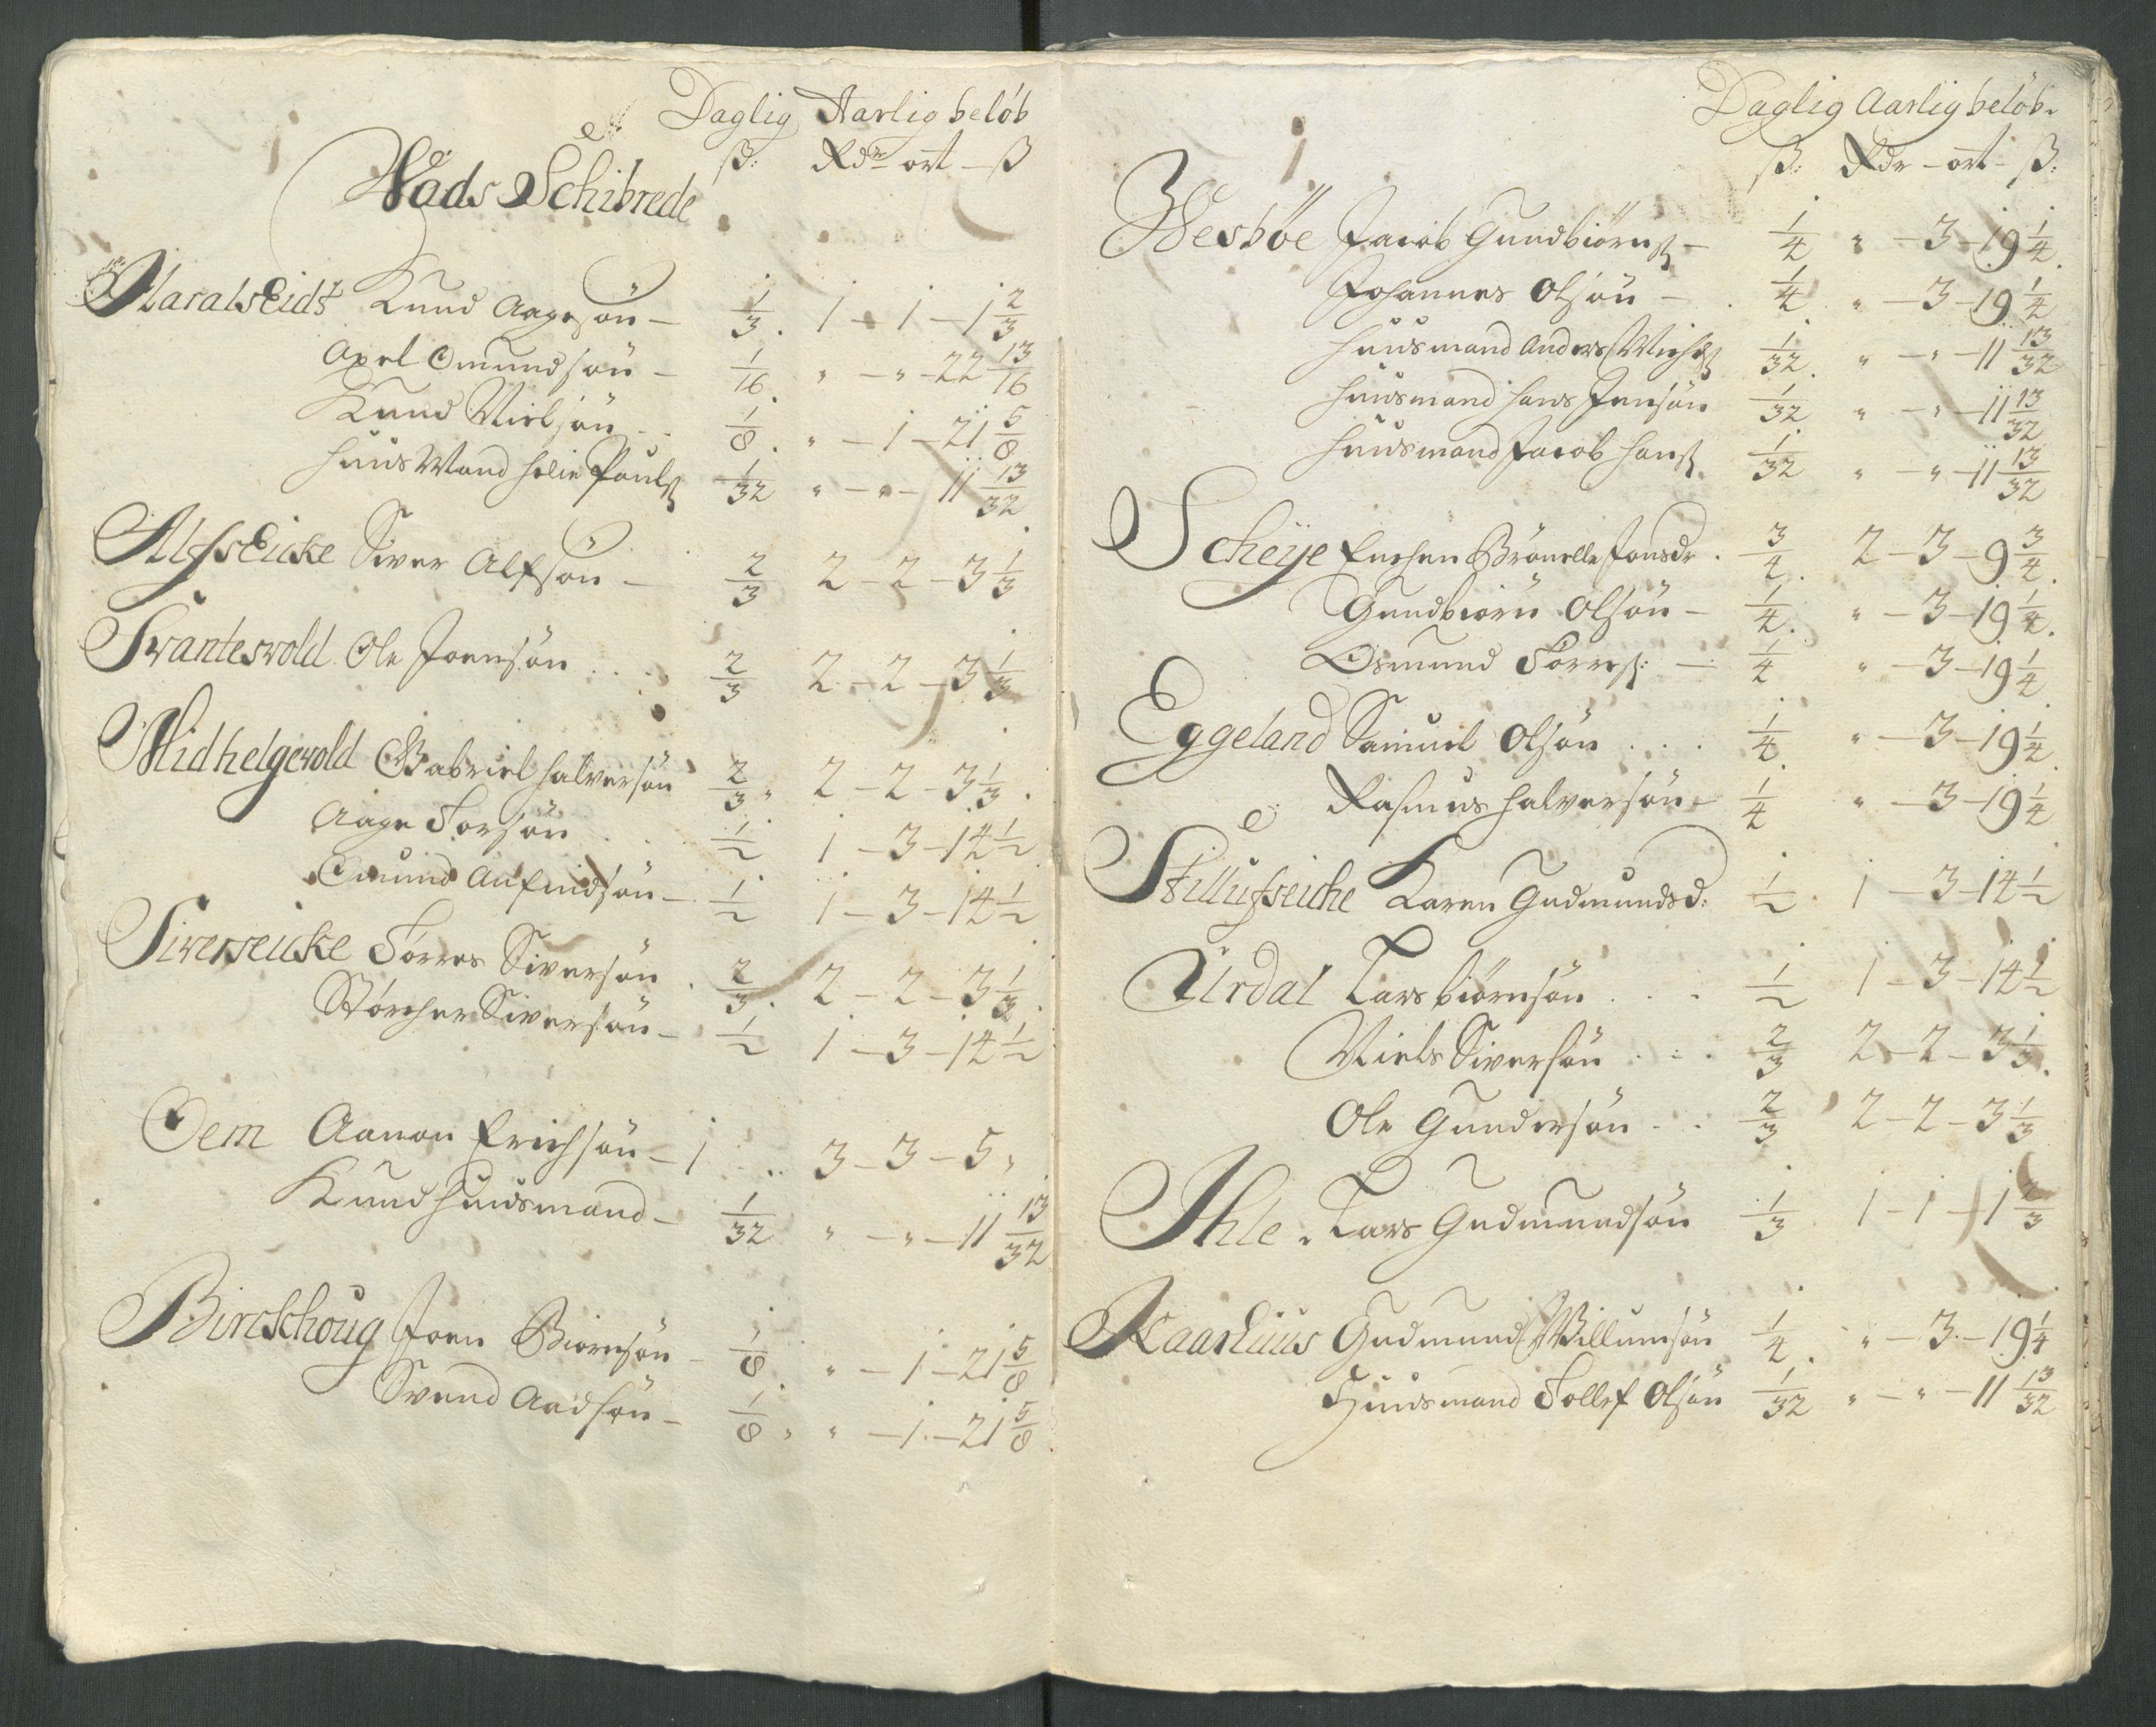 Daglig Aarlig beløb
ß: Rdr ort ß
Wads Schibrede
Haralseidt Knud Aagesön — 1/3. 1 - 1 - 1 2/3
Axel Omundsön — 1/16. " - " - 22 13/16
Knud Nielsön - . 1/8. " - 1 - 21 5/8
Huus Mand Helie Pouls 1/32 " - " - 11 13/32
Alfseicke Siver Alfsön — 2/3 2 - 2 - 3 1/3
Tvantesvold Ole Joensön . . . 2/3 2 - 2 - 3 1/3
Midhelgevold Gabriel Halversön 2/3 2 - 2 - 3 1/3.
Aage Torsön . . 1/2 1 - 3 - 14 1/2
Omund Anfindsön — 1/2 1 - 3 - 14 1/2
Siverseicke Torres Siversön . 2/3. 2 - 2 - 3 1/3.
Störcher Siversön — 1/2 1 - 3 - 14 1/2
Oem Aanon Erichsön — 1 . .. 3 - 3 - 5 "
Knud Huusmand — 1/32 " - " - 11 13/32
Birckhoug Joen Biörnsön — 1/8. " - 1 - 21 5/8
Svend Aadsön — 1/8 " - 1 - 21 5/8
Daglig Aarlig beløb.
ß: Rdr - ort - ß:
Wesböe Jacob Gundbiörns — 1/4 " - 3 - 19 1/4.
Johannes Olsön — 1/4 " - 3 - 19 1/4
Huusmand Anders Michels 1/32. " - " - 11 13/32
Huusmand Hans Jensön 1/32 " - " - 11 13/32
Huusmand Jacob Hans 1/32 " - " - 11 13/32
Scheije Enchen Brönelle Jonsdr. 3/4. 2 - 3 - 9 3/4.
Gundbiörn Olsön — 1/4. " - 3 - 19 1/4.
Osmund Torres: — 1/4 " - 3 - 19 1/4
Eggeland Samuel Olsön . . . 1/4. " - 3 - 19 1/4.
Rasmus Halversön — 1/4 " - 3 - 19 1/4
Stillufseiche Karen Gudmundsd: 1/2. 1 - 3 - 14 1/2
Urdal Lars biörnsön . . . 1/2 1 - 3 - 14 1/2
Niels Siversön . . . 2/3 2 - 2 - 3 1/3.
Ole Gundersön . . 2/3 2 - 2 - 3 1/3
Ihle. Lars Gudmundsön 1/3 1 - 1 - 1 2/3
Kaarhuus Gudmund Willumsön 1/4. " - 3 - 19 1/4
Huusmand Tollef Olsön 1/32 " - " - 11 13/32